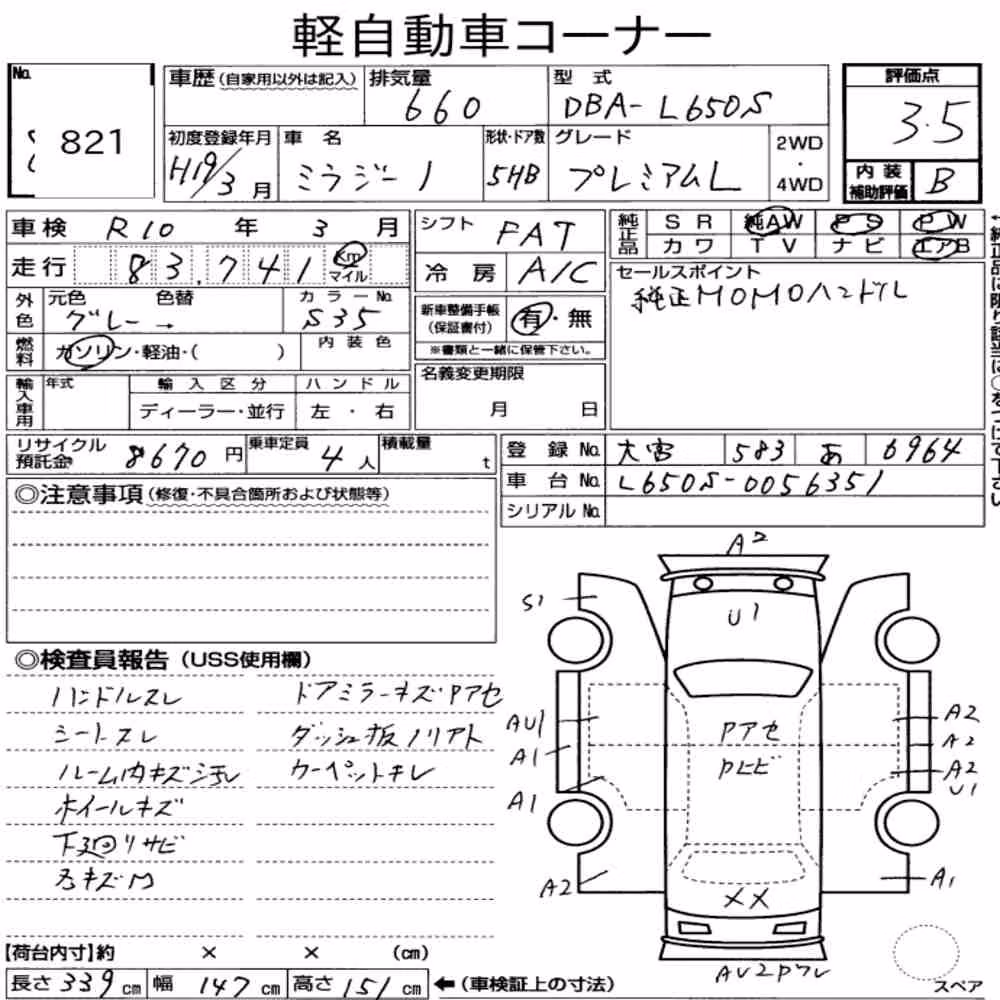 軽自動車コーナー
No. 821
車歴 (自家用以外は記入) 排気量 660 型式 DBA-L650S 評価点 3.5
初度登録年月 H19/3月 車名 ミラジーノ 形状・ドア数 5HB グレード プレミアムL 2WD・4WD 内装補助評価 B
車検 R10年 3月 シフト FAT 純正品 SR 純AW PS PW
走行 83,741 Km マイル 冷房 A/C カワ TV ナビ エアB
セールスポイント
純正MOMOハンドル
外色 元色 グレー → 色替 カラーNo. S35
新車整備手帳 (保証書付) 有・無
※書類と一緒に保管下さい。
燃料 ガソリン・軽油・( ) 内装色
名義変更期限 月 日
輸入車用 年式 輸入区分 ハンドル
ディーラー・並行 左・右
リサイクル預託金 8670円 乗車定員 4人 積載量 t
登録No. 大宮 583 あ 6964
車台No. L650S-0056351
シリアルNo.
◎注意事項 (修復・不具合箇所および状態等)
◎検査員報告 (USS使用欄)
ハンドルスレ ドアミラーキズPアセ
シートスレ ダッシュ板ノリアト
ルーム内キズ汚レ カーペットキレ
ホイールキズ
下廻りサビ
A2
S1
U1
AU1
A1
A1
A2
Pアセ
Pヒビ
A2
A2
A2
U1
A1
XX
AU2Pワレ
【荷台内寸】約 × × (cm)
長さ 339cm 幅 147cm 高さ 151cm ←(車検証上の寸法)
スペア